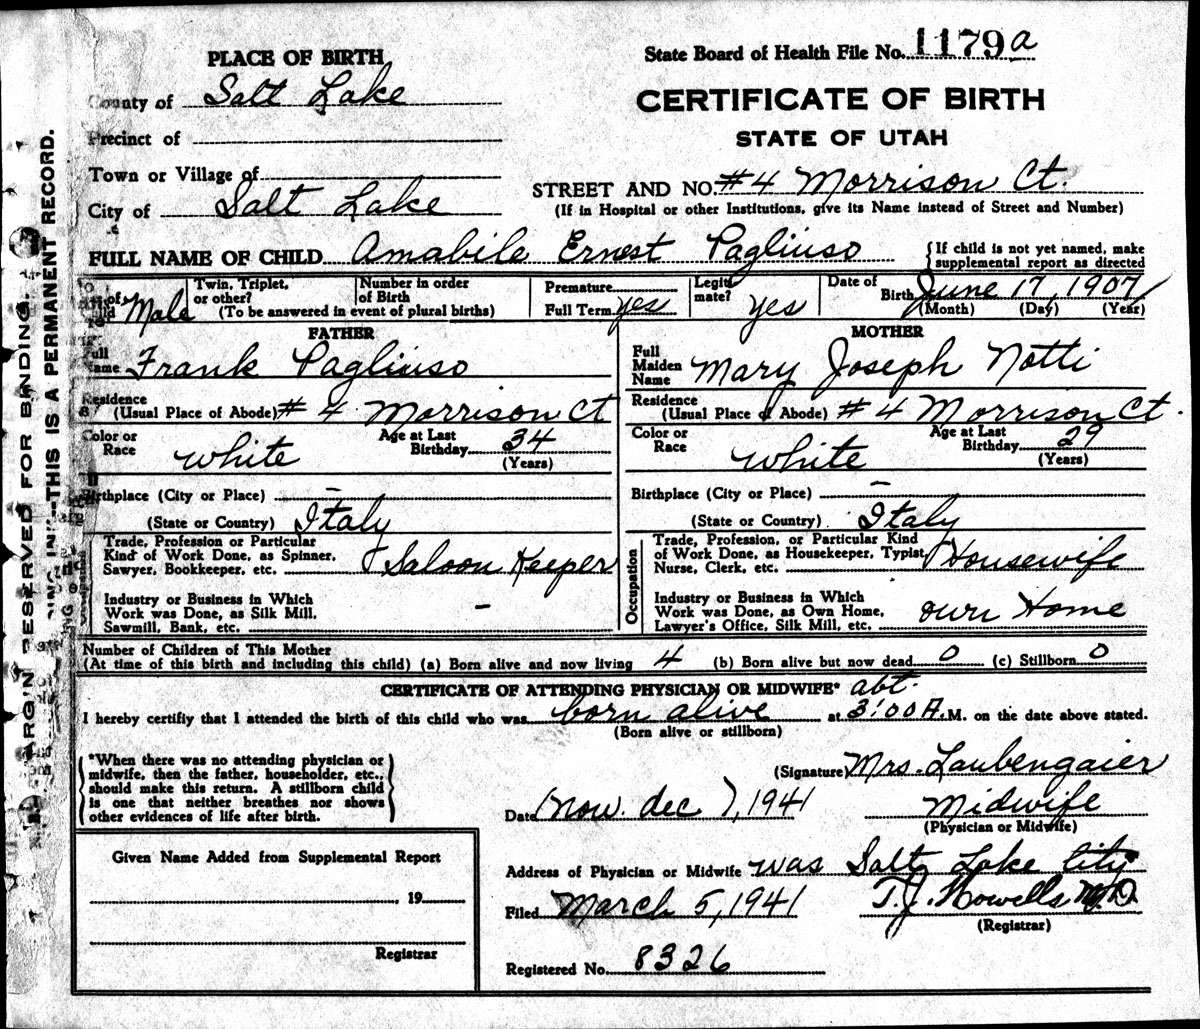 PLACE OF BIRTH
County of Salt Lake
Precinct of
Town or Village of
City of Salt Lake
State Board of Health File No. 1179a
CERTIFICATE OF BIRTH
STATE OF UTAH
STREET AND NO. #4 Morrison Ct.
(If in Hospital or other Institutions, give its Name instead of Street and Number)
FULL NAME OF CHILD Amabile Ernest Pagliuso
{If child is not yet named, make
supplemental report as directed
Male
Twin, Triplet,
or other?
Number in order
of Birth
(To be answered in event of plural births)
Premature
Full Term yes
Legiti
mate? yes
Date of
Birth June 17, 1907
(Month) (Day) (Year)
FATHER
Full
Name Frank Pagliuso
Residence
(Usual Place of Abode) #4 Morrison Ct
Color or
Race White
Age at Last
Birthday 34
(Years)
Birthplace (City or Place) –
(State or Country) Italy
Trade, Profession or Particular
Kind of Work Done, as Spinner,
Sawyer, Bookkeeper, etc. Saloon Keeper
Industry or Business in Which
Work was Done, as Silk Mill,
Sawmill, Bank, etc. –
MOTHER
Full
Maiden
Name Mary Joseph Notti
Residence
(Usual Place of Abode) #4 Morrison Ct.
Color or
Race White
Age at Last
Birthday 29
(Years)
Birthplace (City or Place) –
(State or Country) Italy
Occupation
Trade, Profession, or Particular Kind
of Work Done, as Housekeeper, Typist,
Nurse, Clerk, etc. Housewife
Industry or Business in Which
Work was Done, as Own Home,
Lawyer's Office, Silk Mill, etc. own Home
Number of Children of This Mother
(At time of this birth and including this child) (a) Born alive and now living 4 (b) Born alive but now dead 0 (c) Stillborn 0
CERTIFICATE OF ATTENDING PHYSICIAN OR MIDWIFE*
I hereby certifiy that I attended the birth of this child who was born alive at abt. 3:00 A.M. on the date above stated.
(Born alive or stillborn)
*When there was no attending physician or
midwife, then the father, householder, etc.,
should make this return. A stillborn child
is one that neither breathes nor shows
other evidences of life after birth.
(Signature Mrs. Laubengaier
Date (now dec), 1941
Midwife
(Physician or Midwife)
Address of Physician or Midwife was Salt Lake City
Filed March 5, 1941
T.J. Howells M.D.
(Registrar)
Registered No. 8326
Given Name Added from Supplemental Report
, 19
Registrar
THIS IS A PERMANENT RECORD.
RESERVED FOR BINDING.